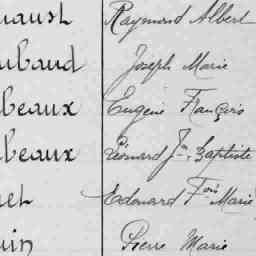 Raymond Albert
ubaud Joseph Marie
beaux Eugène François
beaux Léonard Jn Baptiste
Edouard Fois Marie
Pierre Marie